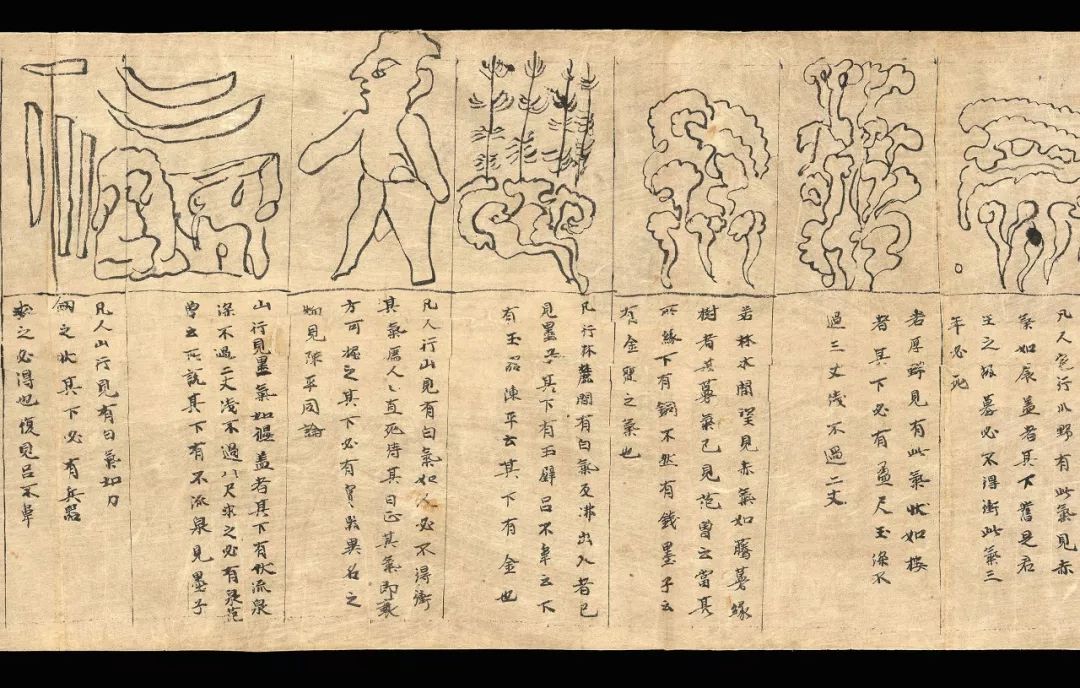 凡人宅行川野有此氣見赤
氣如辰蓋者其下舊是君
王之故墓必不得衝此氣三
年必死
若厚見有此氣狀如樓
者其下必有盈尺玉深不
過三丈淺不過二丈
若林木間望見赤氣如騰蔓緣
樹者其蔓氣已見范曾云當其
所緣下有銅不然有錢墨子云
有金寶之氣也
凡行林麓間有白氣及沸出入者已
見墨子其下有玉璧呂不韋云下
有玉器陳平云其下有金也
凡人行山見有白氣如人必不得衝
其氣厲人〻直死待其日正其氣即衰
方可掘之其下必有寶異名之
物見陳平同論
山行見墨氣如偃蓋者其下有伏流泉
深不過二丈淺不過八尺求之必有泉范
曾云所說其下有不流泉見墨子
凡人山行見有白氣如刀
劍之狀其下必有兵器
求之必得也復見呂不韋